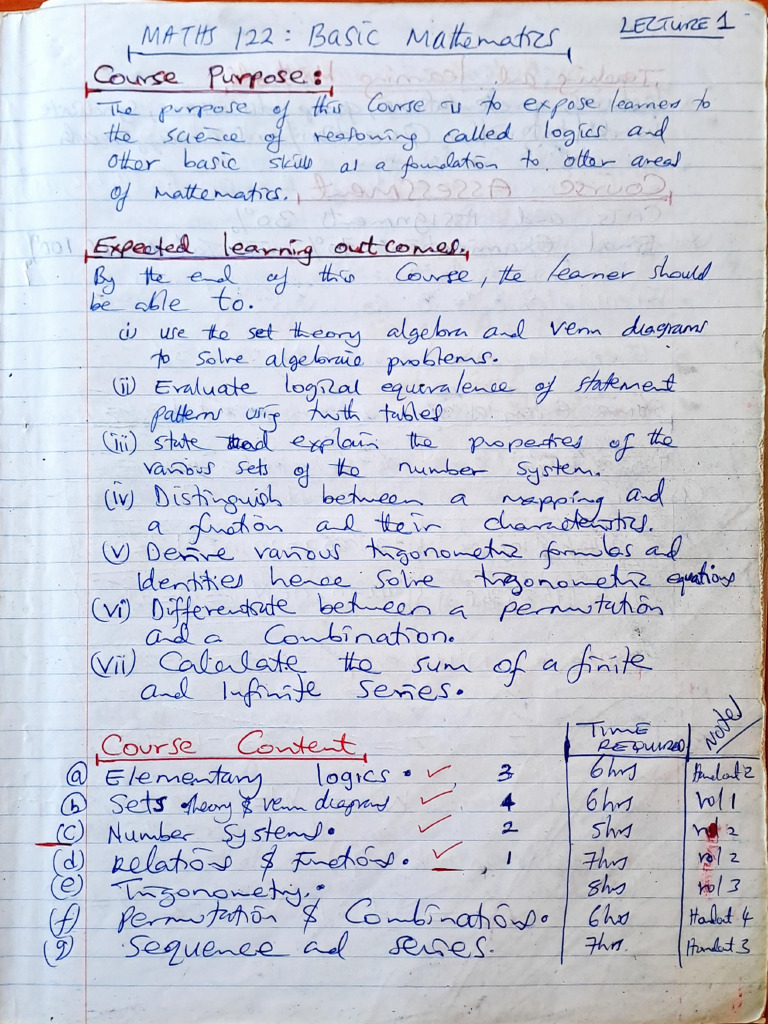 LECTURE 1
MATHS 122: Basic Mathematics
Course Purpose:
The purpose of this Course is to expose learners to
the science of reasoning called logics and
other basic skills as a foundation to other areas
of mathematics.
Expected learning outcomes.
By the end of this Course, the learner should
be able to.
(i) use the set theory algebra and venn diagrams
to solve algebraic problems.
(ii) Evaluate logical equivalence of statement
patterns using truth tables
(iii) state and explain the properties of the
various sets of the number system.
(iv) Distinguish between a mapping and
a function and their characteristics.
(v) Derive various trigonometric formulas and
Identities hence solve trigonometric equations
(vi) Differentiate between a permutation
and a Combination.
(vii) Calculate the sum of a finite
and infinite series.
Course Content TIME REQUIRED Notes
(a) Elementary logics. ✓ 3 6hrs Handout 2
(b) Sets theory & venn diagrams ✓ 4 6hrs vol 1
(c) Number Systems. ✓ 2 5hrs vol 2
(d) Relations & Functions. ✓ 1 7hrs vol 2
(e) Trigonometry. 8hrs vol 3
(f) Permutation & Combinations. 6hrs Handout 4
(g) Sequence and series. 7hrs. Handout 3